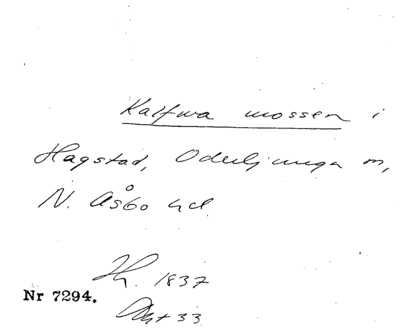 Kalfwa mossen i
Hagstad, Oderljunga m,
N. Åsbo hd.
1837
Nr 7294.
Akt 33